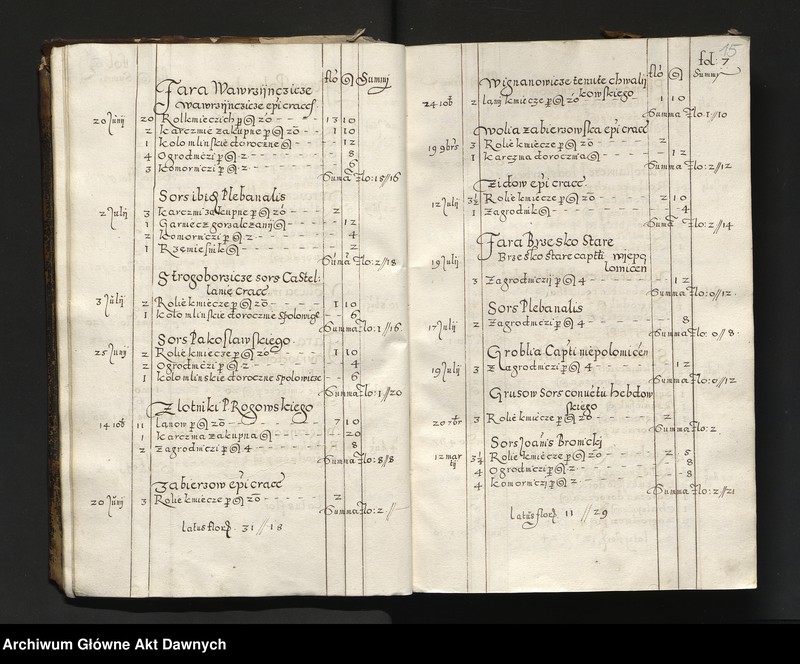 flo g Summ
Fara Wawrzijnczicze
Wawrzijnczicze epi cracc
20 Junij 20 Rolkmieczich p g 20 13 10
2 Karczmie zakupne p g 20 1 10
1 Kolo mlinskie doroczne g 12
4 Ogrodniczi p g 2 8
3 Komorniczi p g 2 6
Summa flo: 15//16
Sors ibid Plebanalis
2 Julij 3 Karczmi zakupne p g 20 2
1 Garniecz gorzalczanij g 12
2 Komorniczi p g 2 4
1 Rzemiesnik g 2
Summa flo: 2//18
Strogoborzicze sors Castel:
lanie Cracc
3 Julij 2 Rolie kmiecze p g 20 1 10
1 Kolo mlinskie doroczne spolowicze 6
Summa flo: 1//16
Sors Pakoslawskiego
25 Junij 2 Rolie kmiecze p g 20 1 10
2 Ogrodniczi p g 2 4
1 Kolo mlinskie doroczne spolowicze 6
Summa flo: 1//20
Zlotniki P Rogowskiego
14 10b 11 Lanow p g 20 7 10
1 Karczma zakupna g 20
2 Zagrodniczi p g 4 8
Summa flo: 8//8
Zabierzow epi cracc
20 Junij 3 Rolie kmiecze p g 20 2
Summa flo: 2//
Latus flor 31//18
15
fol: 7
flo g Summ
Wignanowicze tenute chwalij
kowskiego
24 10b 2 lanij kmiecze p g 20 1 10
Summa flo: 1//10
Wolia zabierzowska epi cracc
19 9brs 3 Rolie kmiecze p g 20 2
1 Karczma doroczna g 12
Summa flo: 2//12
Czidow epi cracc
12 Julij 3½ Rolie kmiecze p g 20 2 10
1 Zagrodnik g 4
Summa flo: 2//14
Fara Brzesko Stare
Brzesko stare capti niepo
lomicen
19 Julij 3 Zagrodniczij p g 4 12
Summa flo: 0//12
Sors Plebanalis
17 Julij 2 Zagrodniczi p g 4 8
Summa flo: 0//8
Groblia Capti niepolomicen
19 Julij 3 Zagrodniczi p g 4 12
Summa flo: 0//12
Grusow Sors conuetu hebdow
skiego
20 7br 3 Rolie kmiecze p g 20 2
Summa flo: 2
Sors Joanis Bronickj
12 mar
tij 3¼ Rolie kmiecze p g 20 2 5
4 Ogrodniczi p g 2 8
4 Komorniczj p g 2 8
Summa flo: 2//21
Latus flor 11//29
Archiwum Główne Akt Dawnych